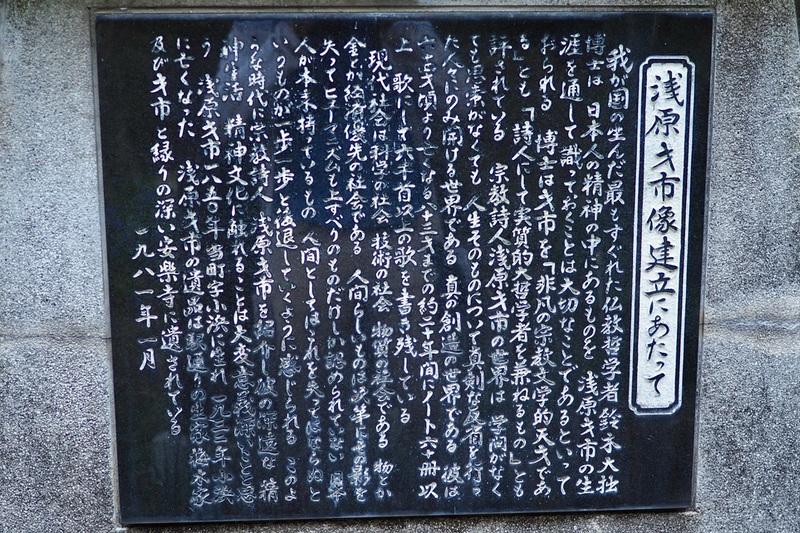 浅原才市像建立にあたって
我が国の生んだ最もすぐれた仏教哲学者 鈴木大拙
博士は 日本人の精神の中にあるものを 浅原才市の生
涯を通して識っておくことは大切なことであるといって
おられる 博士は才市を「非凡の宗教文学的天才であ
る」とも「詩人にして実質的大哲学者を兼ねるもの」とも
評されている 宗教詩人浅原才市の世界は 学問がなく
ても思索がなくても 人生そのものについて真剣な反省を行っ
た人々にのみ開ける世界である 真の創造の世界である 彼は
六十才頃より亡くなる八十三才までの約二十年間にノート六十冊以
上 歌にして六千首以上の歌を書き残している
現代社会は科学の社会 技術の社会 物質の社会である 物とか
金とか経済優先の社会である 人間らしいものは次第にその影を
失ってヒューマニズムも上すべりのものだけしか認められていない 日本
人が本来持っているもの 人間としてはこれを失ってはならぬと
いうものが一歩一歩と後退していくように感じられる このよ
うな時代に宗教詩人 浅原才市を紹介し彼の深遠な 精
神生活 精神文化に触れることは大変意義深いことと思
う 浅原才市一八五〇年 当町字小浜に生れ 一九三二年小浜
に亡くなった 浅原才市の遺品は駅通りの生家 梅木家
及び才市と縁りの深い安楽寺に遺されている
一九八一年一月